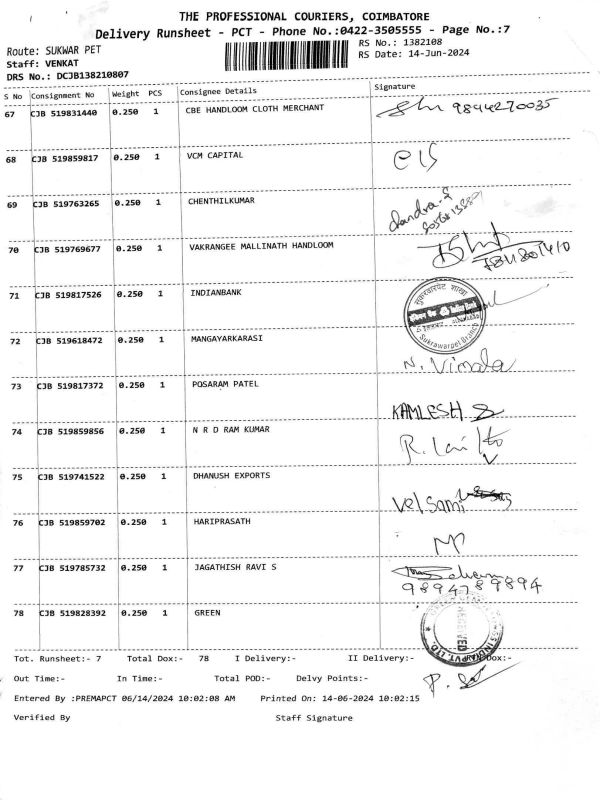 THE PROFESSIONAL COURIERS, COIMBATORE
Delivery Runsheet - PCT - Phone No.:0422-3505555 - Page No.:7
Route: SUKWAR PET
RS No.: 1382108
Staff: VENKAT
RS Date: 14-Jun-2024
DRS No.: DCJB138210807
S No Consignment No Weight PCS Consignee Details Signature
67 CJB 519831440 0.250 1 CBE HANDLOOM CLOTH MERCHANT 9844270035
68 CJB 519859817 0.250 1 VCM CAPITAL
69 CJB 519763265 0.250 1 CHENTHILKUMAR
chandra.S
70 CJB 519769677 0.250 1 VAKRANGEE MALLINATH HANDLOOM
71 CJB 519817526 0.250 1 INDIANBANK
सुक्रवारपेट शाखा
Sukrawarpet Branch
72 CJB 519618472 0.250 1 MANGAYARKARASI
N. Vimala
73 CJB 519817372 0.250 1 POSARAM PATEL
KAMLESH
74 CJB 519859856 0.250 1 N R D RAM KUMAR
75 CJB 519741522 0.250 1 DHANUSH EXPORTS
Velsami
76 CJB 519859702 0.250 1 HARIPRASATH
77 CJB 519785732 0.250 1 JAGATHISH RAVI S
9894789894
78 CJB 519828392 0.250 1 GREEN
RECEIVED
Tot. Runsheet:- 7 Total Dox:- 78 I Delivery:- II Delivery:- Dox:-
Out Time:- In Time:- Total POD:- Delvy Points:-
Entered By :PREMAPCT 06/14/2024 10:02:08 AM Printed On: 14-06-2024 10:02:15
Verified By Staff Signature